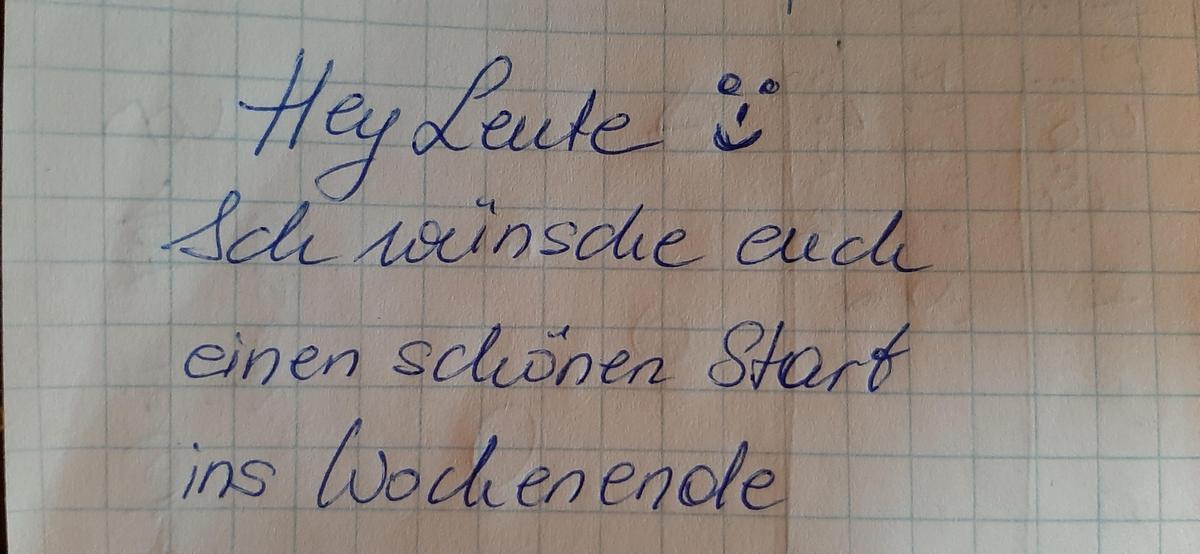 Hey Leute
Ich wünsche euch
einen schönen Start
ins Wochenende